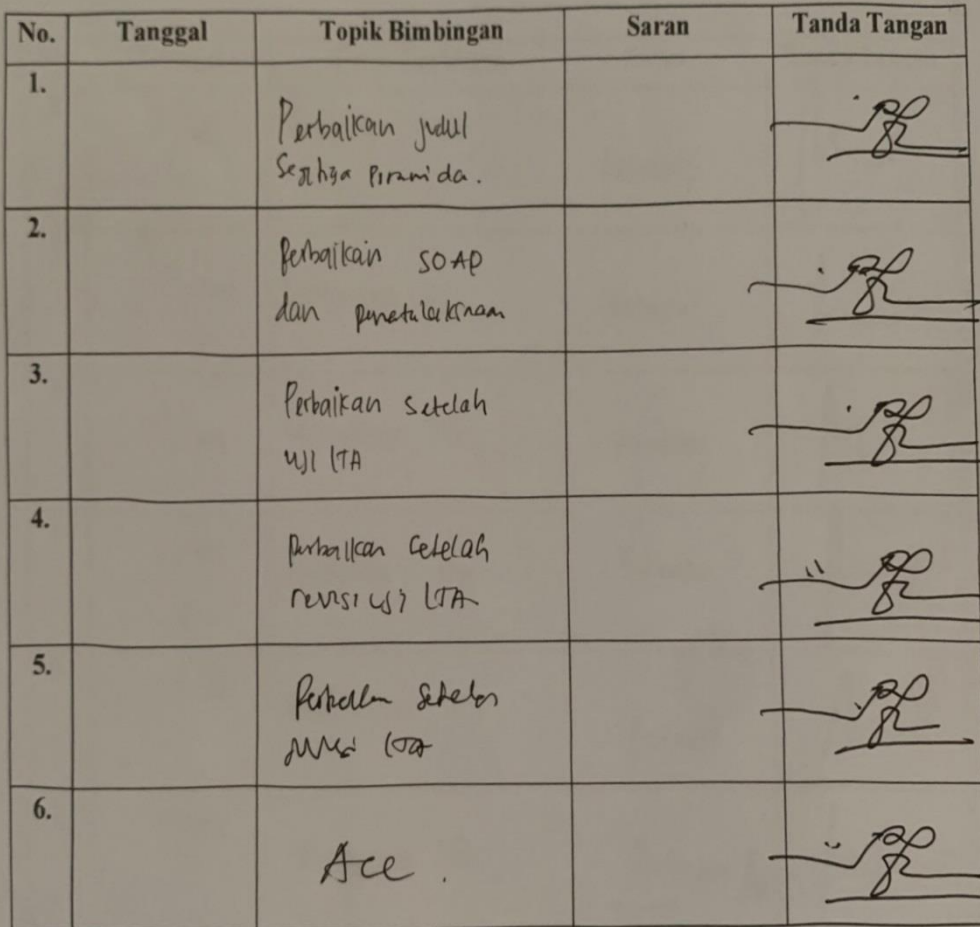 No. Tanggal Topik Bimbingan Saran Tanda Tangan
1.
Perbaikan judul
Segitiga Piramida.
2.
Perbaikan SOAP
dan penatalaksinaan
3.
Perbaikan setelah
uji LTA
4.
perbaikan setelah
revisi uji LTA
5.
Perbaikan setelah
LTA
6.
Acc.